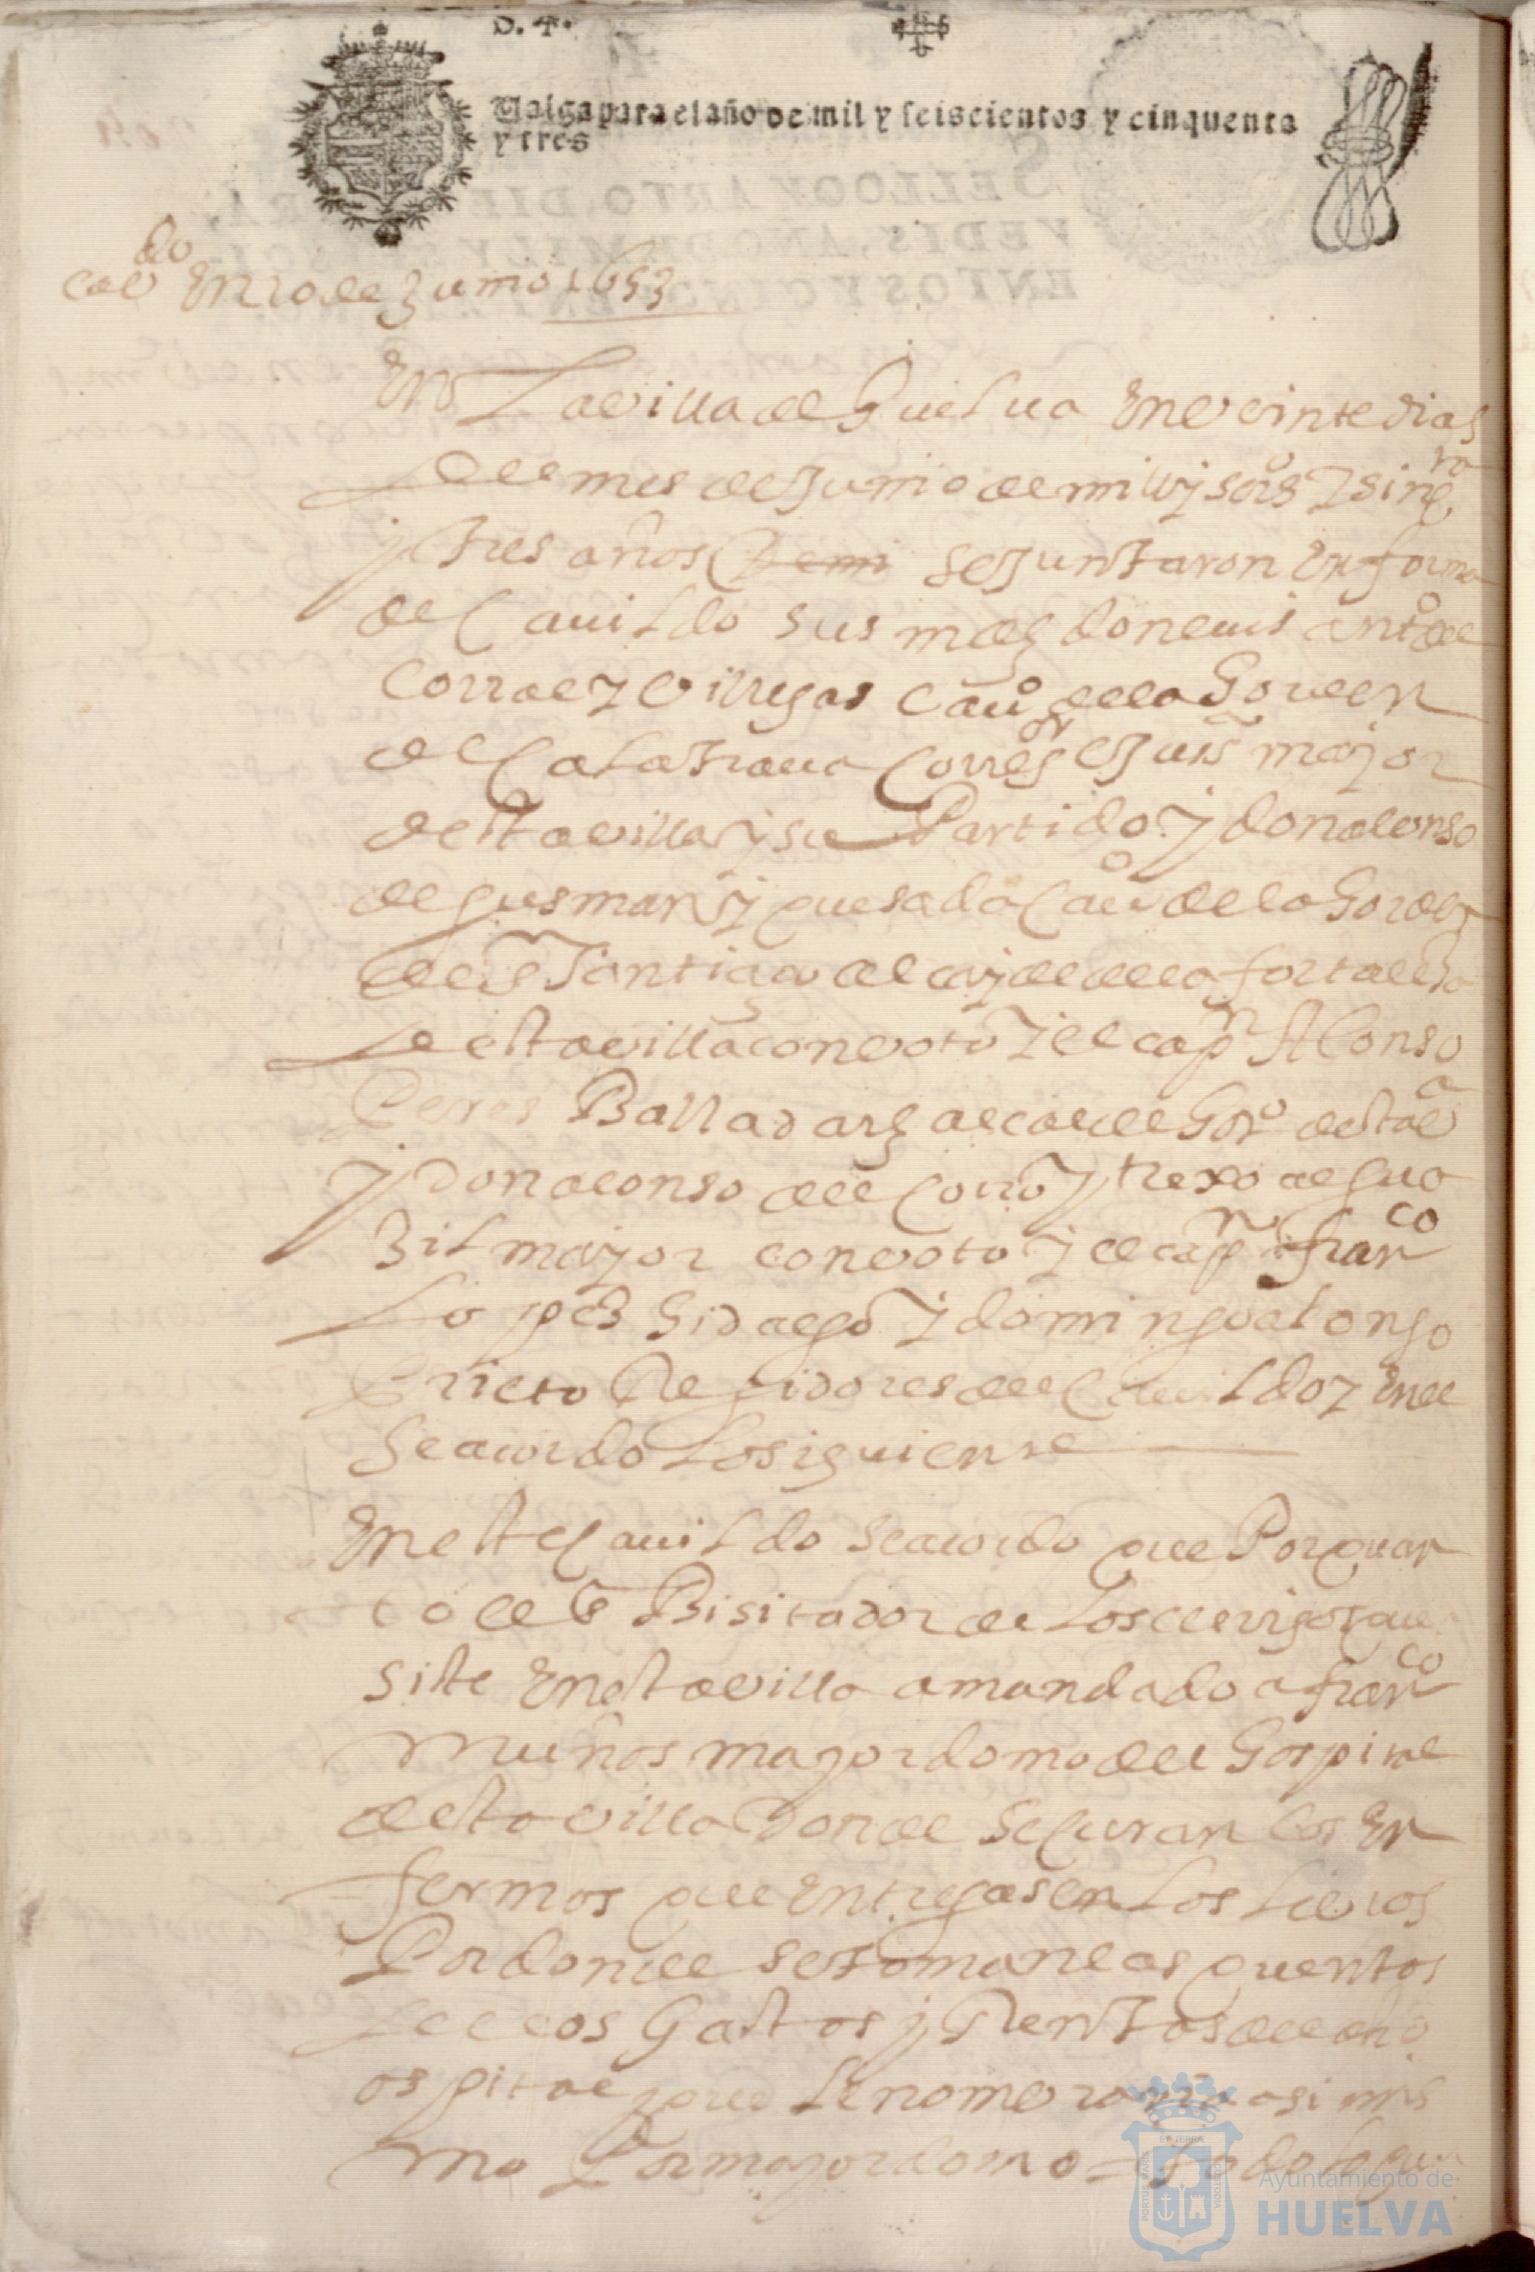 D. 4.
Valga para el año de mil y seiscientos y cinquenta
y tres
cavdo En 20 de Junio 1653
En La villa de Guelua En veinte dias
del mes de Junio de mill y sos y sinqta
y tres años se Juntaron En forma
de Cauildo sus mdes don luis anto del
Corral y Villegas cauo de la Gorden
de Calatraua Corregor e Justa major
desta villa y su Partido y don alonso
de gusman y quesada cauo de la Gorden
de Sr Santiago alcayde de la fortalesa
desta villa con voto y el capn Alonso
Peres Balladarez alcalde Gordo desta va
y Don alonso del Corro y trexo algua
zil mayor con voto y el capn franco
Lopez Hidalgo y domingo alonso
Prieto Regidores del Cauildo y En el
se acordo Lo siguiente
En este Cauildo se acordo que Por quan
to el Sr Bisitador de Los clerigos que
siste En esta villa a mandado a franco
Muños mayordomo del Gospital
desta villa Donde se Curan los En
fermos que entregasen Los Libros
Por donde se toman las quentas
de los Gastos y Rentas del dho
ospital y que se nombraria asi mis
mo Por mayordomo =
Ayuntamiento de
HUELVA